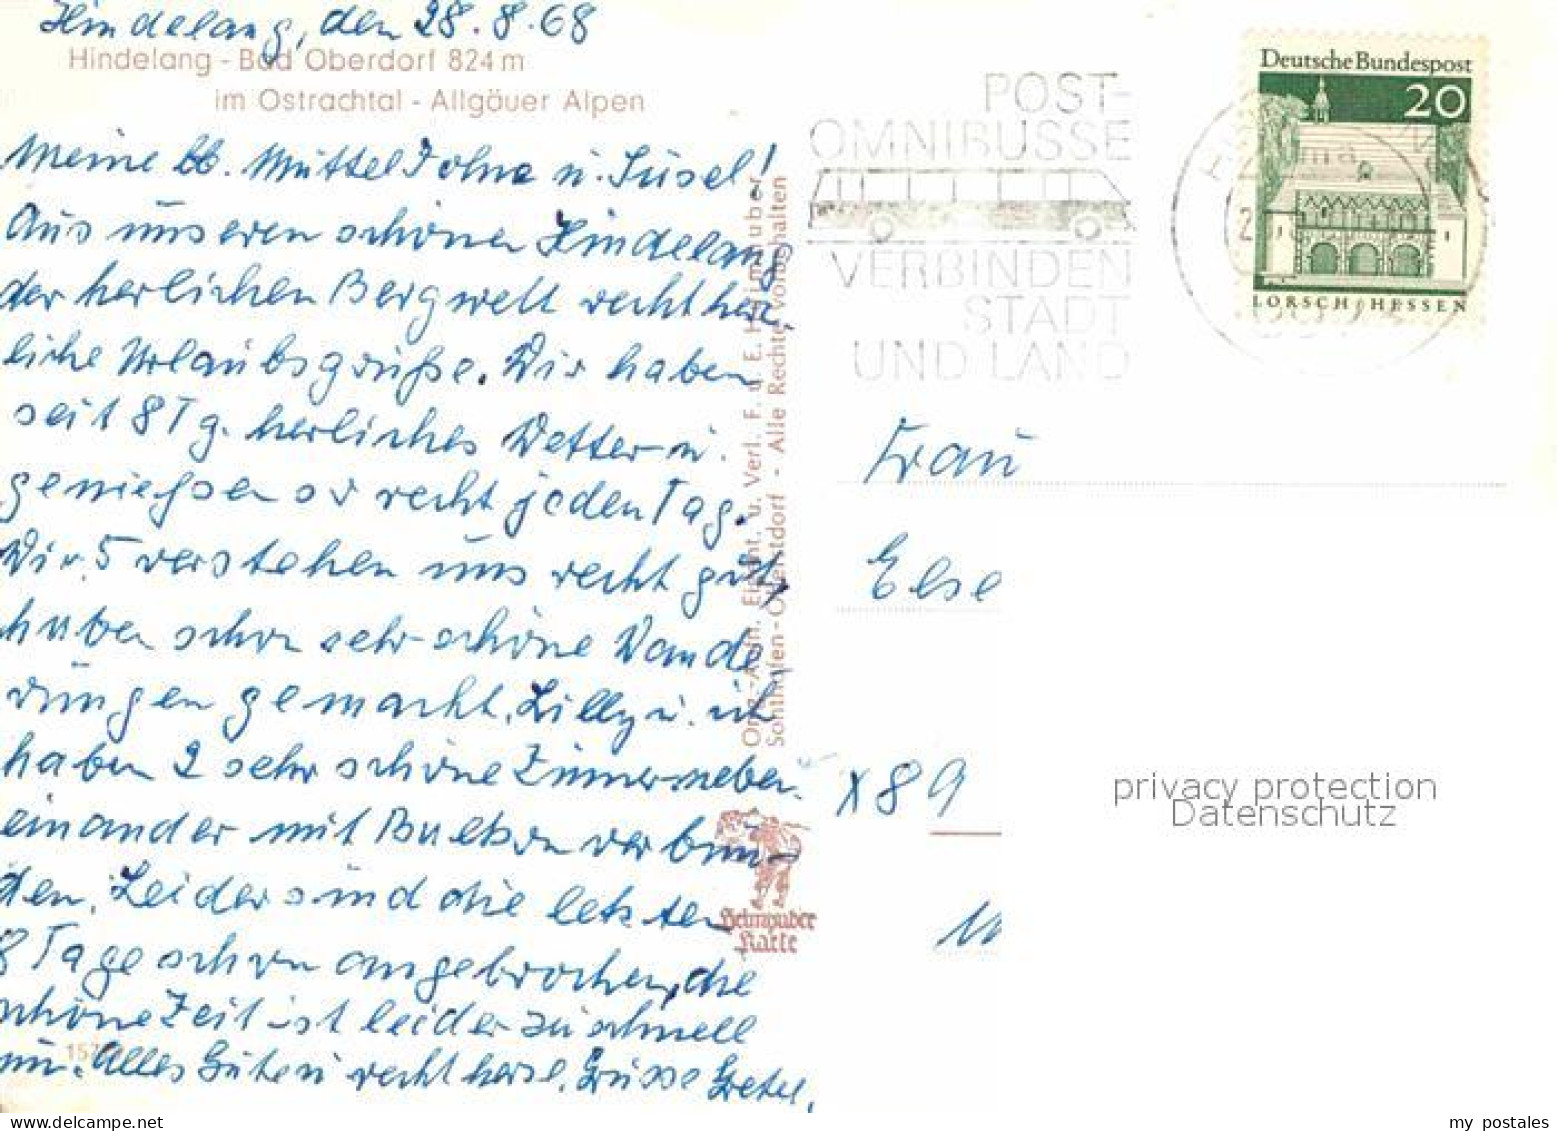 Hindelang, den 28.8.68
Hindelang - Bad Oberdorf 824 m
im Ostrachtal - Allgäuer Alpen
Meine lb. Muttel u. Susel!
Aus unseren schönen Hindelang
der herlichen Bergwelt recht herz-
liche Urlaubsgrüße. Wir haben
seit 8 Tg. herliches Wetter u.
genießen es recht jeden Tag.
Wir 5 verstehen uns recht gut,
haben schon sehr schöne Wande
rungen gemacht. Lilly u. ich
haben 2 sehr schöne Zimmer neben
einander mit Balkon verbun-
den. Leider sind die letzten
8 Tage schon angebrochen, die
schöne Zeit ist leider zu schnell
um. Alles Gute u recht herzl. Grüsse Gretel.
Sonthofen-Oberstdorf - Alle Rechte vorbehalten
Karte
POST-
OMNIBUSSE
VERBINDEN
STADT
UND LAND
Deutsche Bundespost
20
LORSCH/HESSEN
Frau
Else
X 89
privacy protection
Datenschutz
my postales